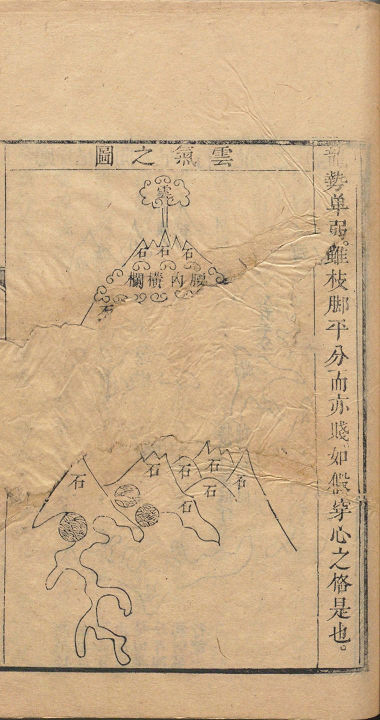 龍势单弱。雖枝脚平分而亦賤如假穿心之格是也。
雲氣之圖
雲
石
石
石
腰内橫欄
石
石
石
石
石
石
石
石